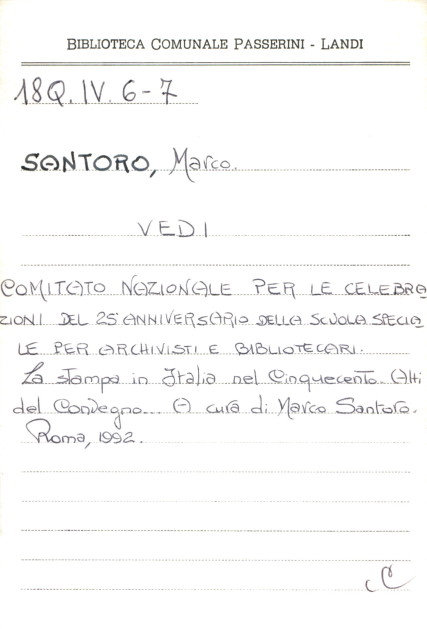 BIBLIOTECA COMUNALE PASSERINI - LANDI
18Q.IV.6-7
SANTORO, Marco.
VEDI
COMITATO NAZIONALE PER LE CELEBRA
ZIONI DEL 25° ANNIVERSARIO DELLA SCUOLA SPECIA
LE PER ARCHIVISTI E BIBLIOTECARI.
La stampa in Italia nel Cinquecento. Atti
del Convegno... A cura di Marco Santoro.
Roma, 1992.